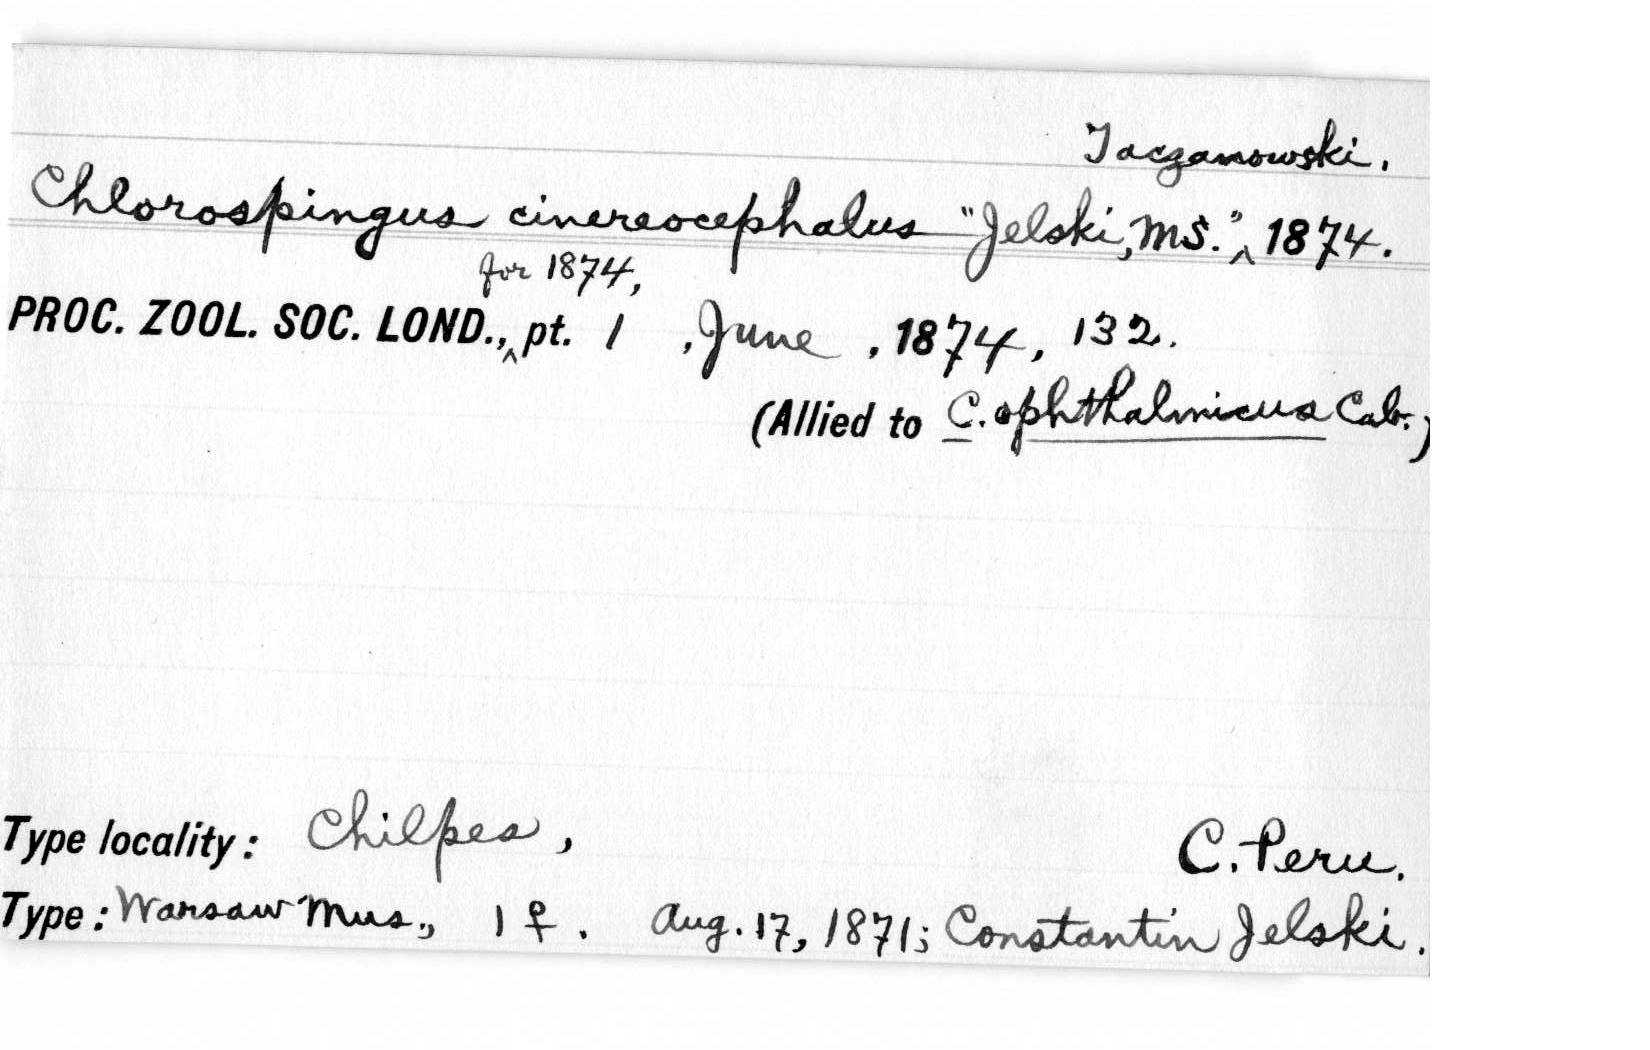 Taczanowski.
Chlorospingus cinereocephalus "Jelski, MS." ^ 1874.
for 1874,
PROC. ZOOL. SOC. LOND., ^ pt. 1 , June , 1874, 132.
(Allied to C. ophthalmicus Cab.)
Type locality: Chilpes, C. Peru.
Type: Warsaw Mus., 1 ♀. Aug. 17, 1871; Constantin Jelski.